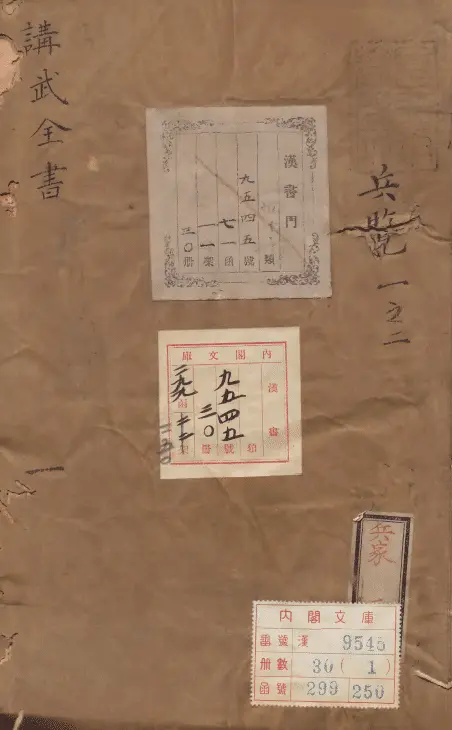 講武全書
一
兵覽 一之二
漢書門
類
九五四五號
七一函
一一架
三〇冊
內閣文庫
漢書
九五四五號
三〇冊
二九九函
二五〇
兵家
內閣文庫
番號 漢 9545
冊數 30 ( 1 )
函號 299 250